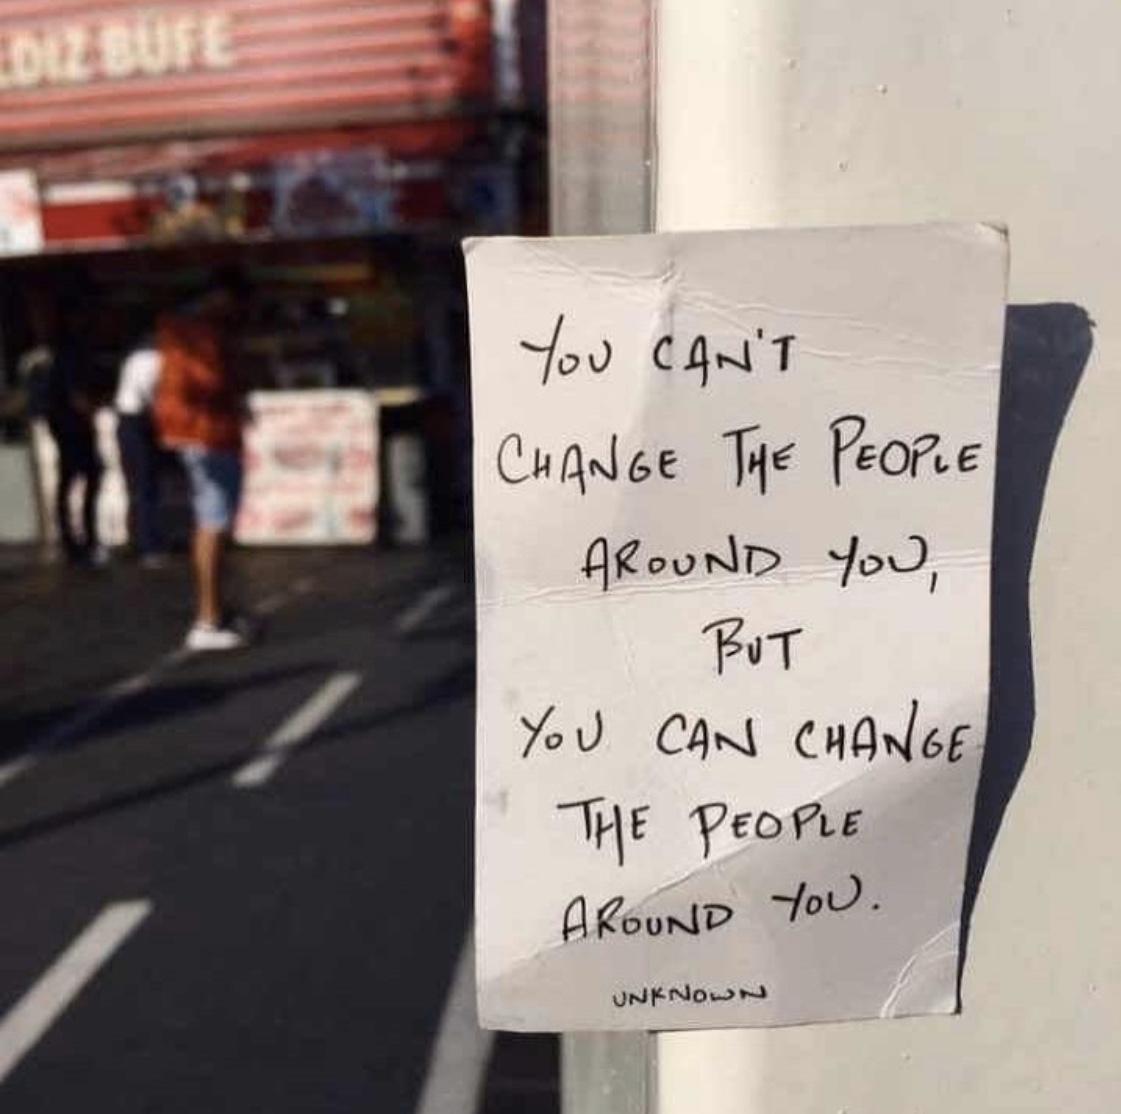 LDIZ BÜFE
YOU CAN'T
CHANGE THE PEOPLE
AROUND YOU,
BUT
YOU CAN CHANGE
THE PEOPLE
AROUND YOU.
UNKNOWN